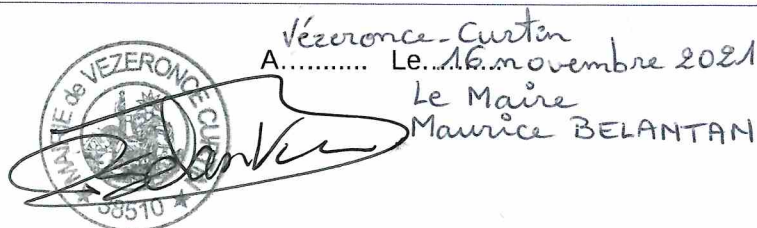 Vézeronce-Curtin
A........... Le 16 novembre 2021
Le Maire
Maurice BELANTAN
MAIRIE de VEZERONCE CURTIN
★ 38510 ★
Belantan